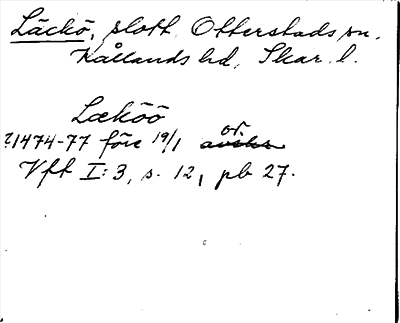 Läckö, slott, Otterstads sn.
Kållands hd, Skar. l.
Læköö
?1474-77 före 19/1 or.
Vft I:3, s. 12, pb 27.